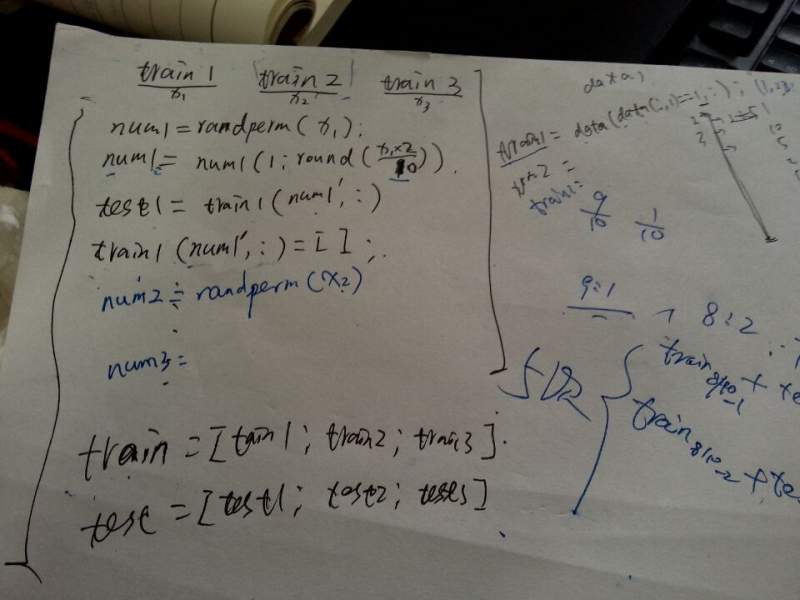 train1 train2 train3
x1 x2 x3
num1 = randperm(x1);
num1 = num1(1:round(x1×2/10)).
test1 = train1(num1',:)
train1(num1',:) = [ ];
num2 = randperm(x2)
num3 =
train = [tain1; train2; train3].
test = [test1; test2; tests]
data)
train1 = data(data(:,1)==1,:);
9/10 1/10
9:1 8:2
train8/10-1 +
train8/10-2 +